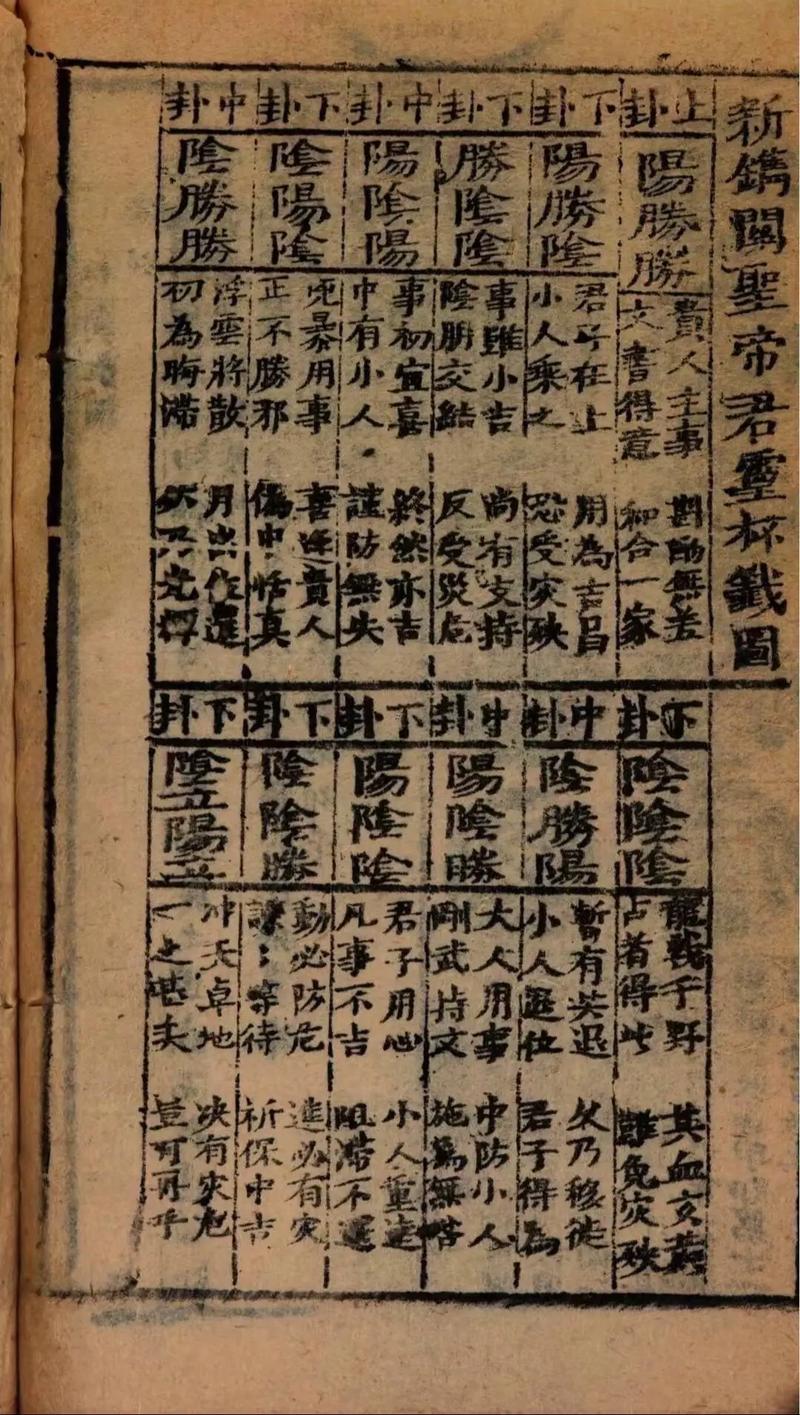 新鐫関聖帝君靈杯籤圖
上卦
陽勝勝
貴人主事 斟酌無差
文書得意 和合一家
下卦
陽勝陰
君子在上 用為吉昌
小人乘之 恐受灾殃
下卦
勝陰陰
事雖小吉 尚有支持
陰朋交結 反受災危
中卦
陽陰陽
事初宜喜 終然亦吉
中有小人 謹防無失
下卦
陰陽陰
兇暴用事 喜逢貴人
正不勝邪 偽中恬真
中卦
陰勝勝
浮雲將散 月出
初為晦滞 光輝
下卦
陰陰陰
龍戰于野 其血玄黃
占者得此 難免灾殃
中卦
陰勝陽
暫有災退 久乃移徙
小人退位 君子得為
中卦
陽陰勝
大人用事 中防小人
剛武持文 施為無咎
下卦
陽陰陰
君子用心 小人重逢
凡事不吉 阻滞不運
下卦
陰陰勝
動必防危 進必有灾
謙〻等待 祈保中吉
下卦
陰立陽立
冲天卓地 决有灾危
一之甚矣 豈可再乎